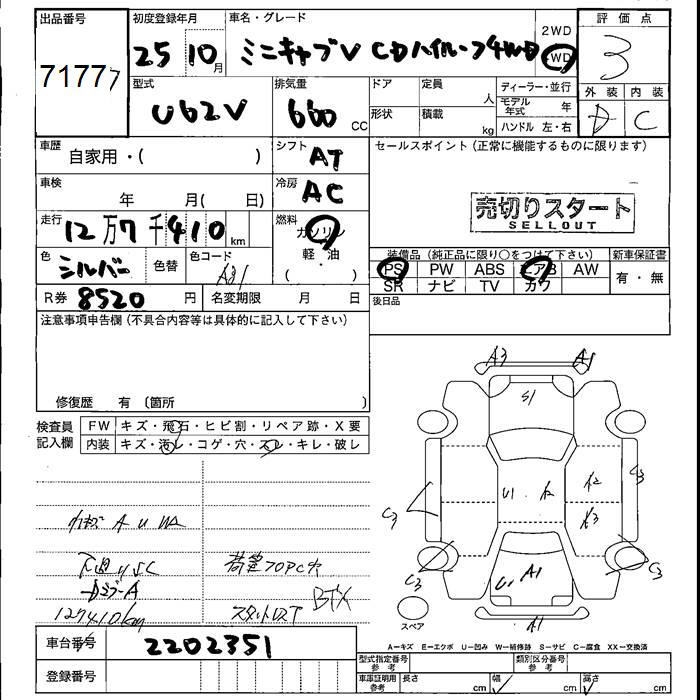 出品番号 初度登録年月 車名・グレード 2WD 評価点
71777 25 10月 ミニキャブV CDハイルーフ4WD 4WD 3
型式 排気量 ドア 定員 人 ディーラー・並行 外装 内装
U62V 660 CC 形状 積載 kg モデル年式 年 D C
ハンドル 左・右
車歴 自家用・( ) シフト AT セールスポイント (正常に機能するものに限ります)
車検 年 月( 日) 冷房 AC
売切りスタート
SELLOUT
走行 12万7千410km 燃料 ガソリン
軽・油
( )
色 シルバー 色替 色コード A31 装備品 (純正品に限り○をつけて下さい) 新車保証書
PS PW ABS エアB AW 有・無
SR ナビ TV カワ
R券 8520円 名変期限 月 日 後日品
注意事項申告欄 (不具合内容等は具体的に記入して下さい)
修復歴 有 〔箇所 〕
検査員記入欄 FW キズ・飛石・ヒビ割・リペア跡・X要
内装 キズ・汚レ・コゲ・穴・スレ・キレ・破レ
A3 A1
S1
U1 A2
A3
C3 C3
C3 C3
U1 A1
A1
スペア
キズ A U WA
下廻りSC
127410km
BTX
車台番号 2202351
登録番号
A=キズ E=エクボ U=凹み W=補修跡 S=サビ C=腐食 XX=交換済
型式指定番号 参考 類別区分番号 参考
車庫証明用 参考 長さ cm 幅 cm 高さ cm